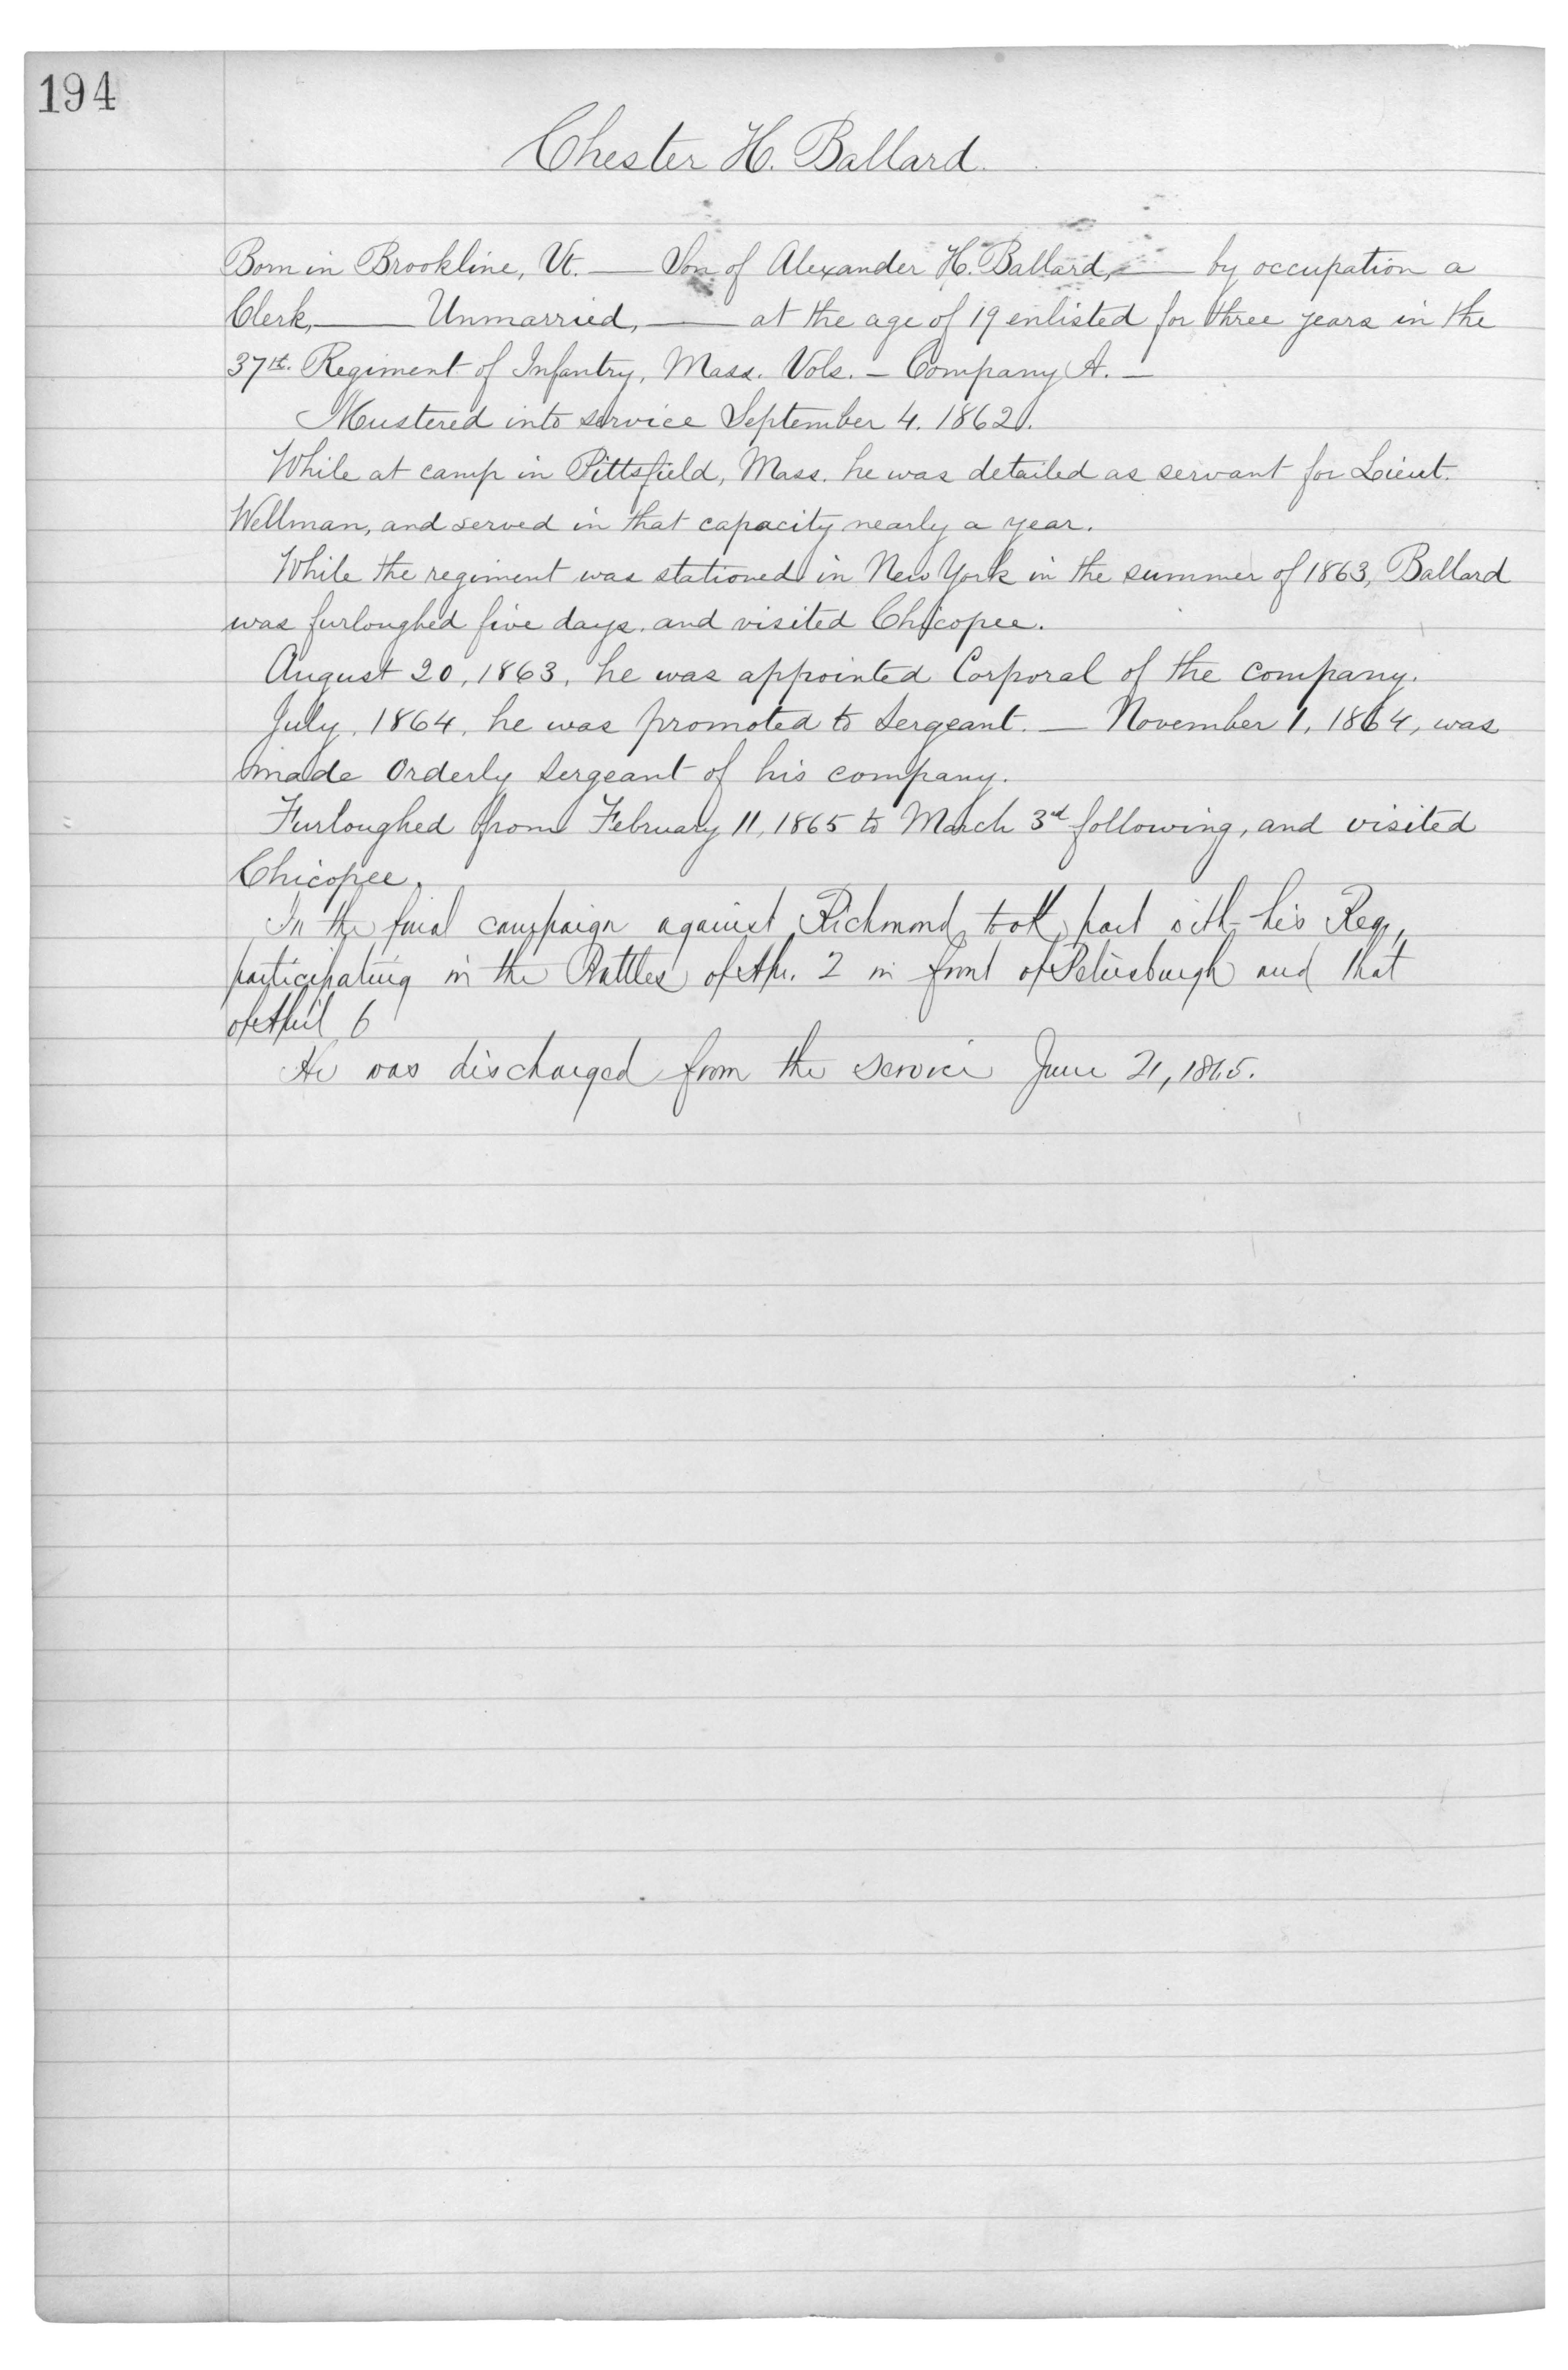 194
Chester H. Ballard.
Born in Brookline, Vt. — Son of Alexander H. Ballard, — by occupation a
Clerk, — Unmarried, — at the age of 19 enlisted for three years in the
37th. Regiment of Infantry, Mass. Vols. — Company A. —
Mustered into service September 4. 1862.
While at camp in Pittsfield, Mass. he was detailed as servant for Lieut.
Wellman, and served in that capacity nearly a year.
While the regiment was stationed in New York in the summer of 1863, Ballard
was furloughed five days, and visited Chicopee.
August 20, 1863, he was appointed Corporal of the company.
July, 1864, he was promoted to Sergeant. — November 1, 1864, was
made Orderly Sergeant of his company.
Furloughed from February 11, 1865 to March 3rd following, and visited
Chicopee.
In the final campaign against Richmond took part with his Reg,
participating in the Battles of Apr. 2 in front of Petersburgh and that
of April 6
He was discharged from the service June 21, 1865.